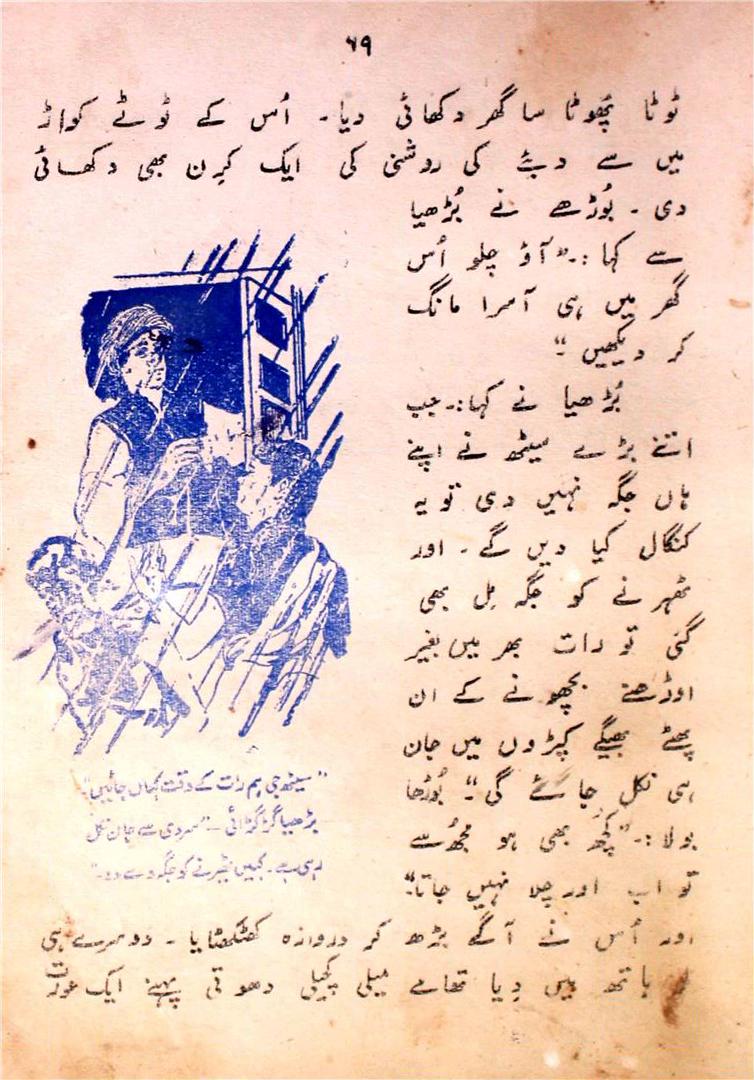 ۶۹
ٹوٹا پھوٹا سا گھر دکھائی دیا۔ اُس کے ٹوٹے کواڑ
میں سے دیئے کی روشنی کی ایک کرن بھی دکھائی
دی۔ بُوڑھے نے بُڑھیا
سے کہا :۔ "آؤ چلو اُس
گھر میں ہی آسرا مانگ
کر دیکھیں"
بُڑھیا نے کہا:۔ جب
اتنے بڑے سیٹھ نے اپنے
ہاں جگہ نہیں دی تو یہ
کنگال کیا دیں گے۔ اور
ٹھہرنے کو جگہ مِل بھی
گئی تو رات بھر میں بغیر
اوڑھنے بچھونے کے ان
پھٹے بھیگے کپڑوں میں جان
ہی نکل جائے گی"۔ بُوڑھا
بولا :۔ "کچھ بھی ہو مجھ سے
تو اب اور چلا نہیں جاتا"
"سیٹھ جی ہم رات کے وقت کہاں جائیں"
بڑھیا گڑگڑائی۔ "سردی سے جان نکل
رہی ہے۔ کہیں ٹھہرنے کو جگہ دے دو۔"
اور اُس نے آگے بڑھ کر دروازہ کھٹکھٹایا۔ دوسرے ہی
ہاتھ میں دِیا تھامے میلی کچیلی دھوتی پہنے ایک عورت